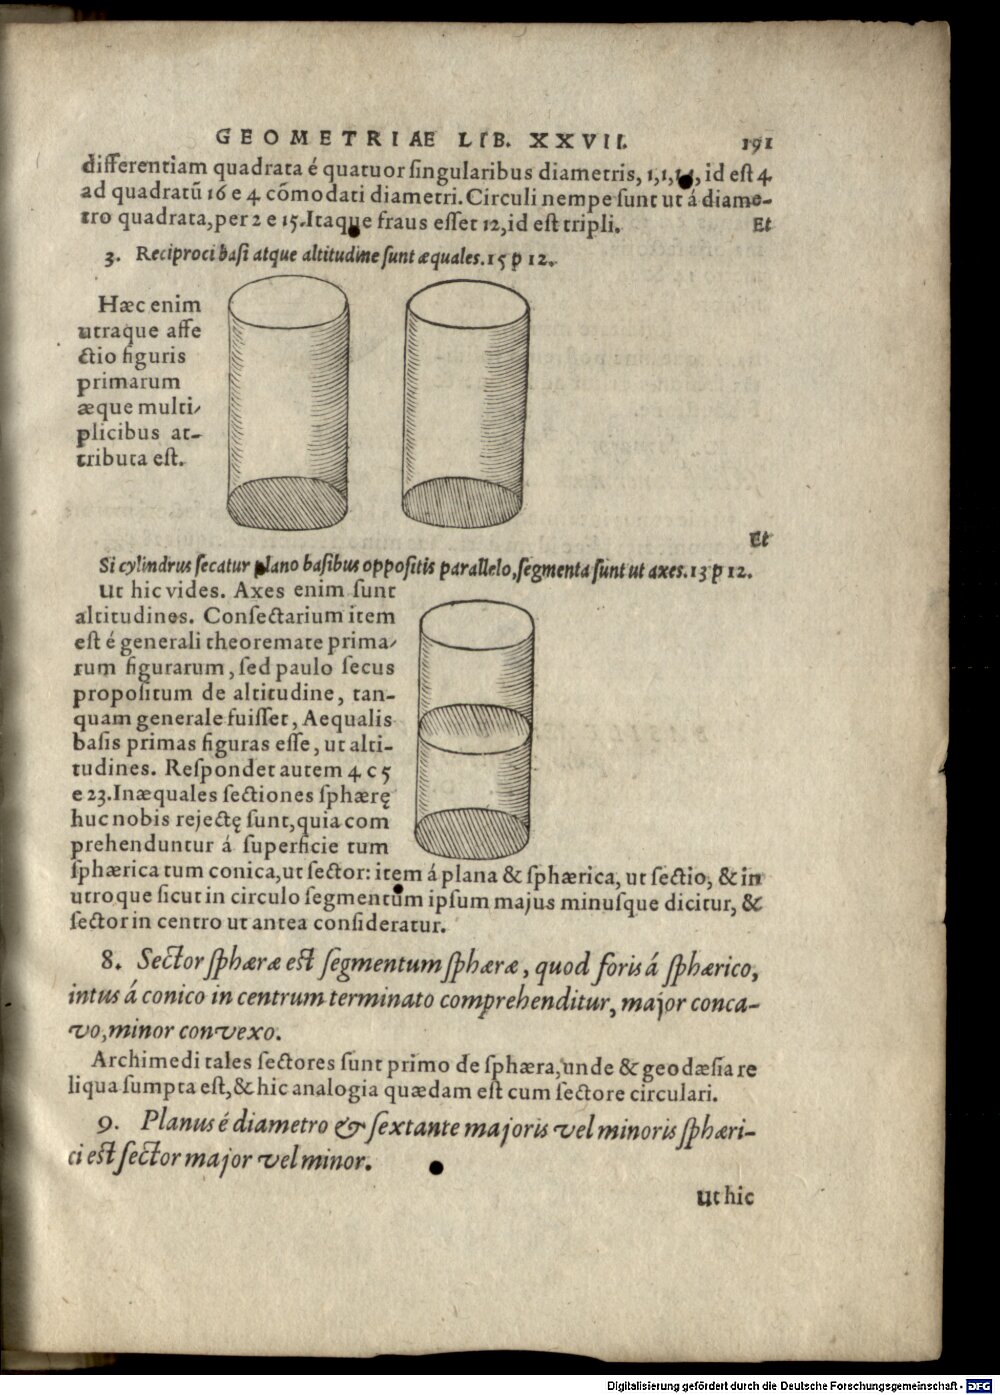 GEOMETRIAE LIB. XXVII. 191
differentiam quadrata é quatuor singularibus diametris, 1,1,1,1, id est 4
ad quadratũ 16 e 4 cõmodati diametri. Circuli nempe sunt ut á diame-
tro quadrata, per 2 e 15. Itaque fraus esset 12, id est tripli. Et
3. Reciproci basi atque altitudine sunt æquales. 15 p 12.
Hæc enim
utraque affe
ctio figuris
primarum
æque multi-
plicibus at-
tributa est.
Et
Si cylindrus secatur plano basibus oppositis parallelo, segmenta sunt ut axes. 13 p 12.
Ut hic vides. Axes enim sunt
altitudines. Consectarium item
est é generali theoremate prima-
rum figurarum, sed paulo secus
propositum de altitudine, tan-
quam generale fuisset, Aequalis
basis primas figuras esse, ut alti-
tudines. Respondet autem 4 c 5
e 23. Inæquales sectiones sphærę
huc nobis rejectę sunt, quia com
prehenduntur á superficie tum
sphærica tum conica, ut sector: item á plana & sphærica, ut sectio, & in
utroque sicut in circulo segmentum ipsum majus minusque dicitur, &
sector in centro ut antea consideratur.
8. Sector sphæræ est segmentum sphæræ, quod foris á sphærico,
intus á conico in centrum terminato comprehenditur, major conca-
vo, minor convexo.
Archimedi tales sectores sunt primo de sphæra, unde & geodæsia re
liqua sumpta est, & hic analogia quædam est cum sectore circulari.
9. Planus é diametro & sextante majoris vel minoris sphæri-
ci est sector major vel minor.
Ut hic
Digitalisierung gefördert durch die Deutsche Forschungsgemeinschaft - DFG